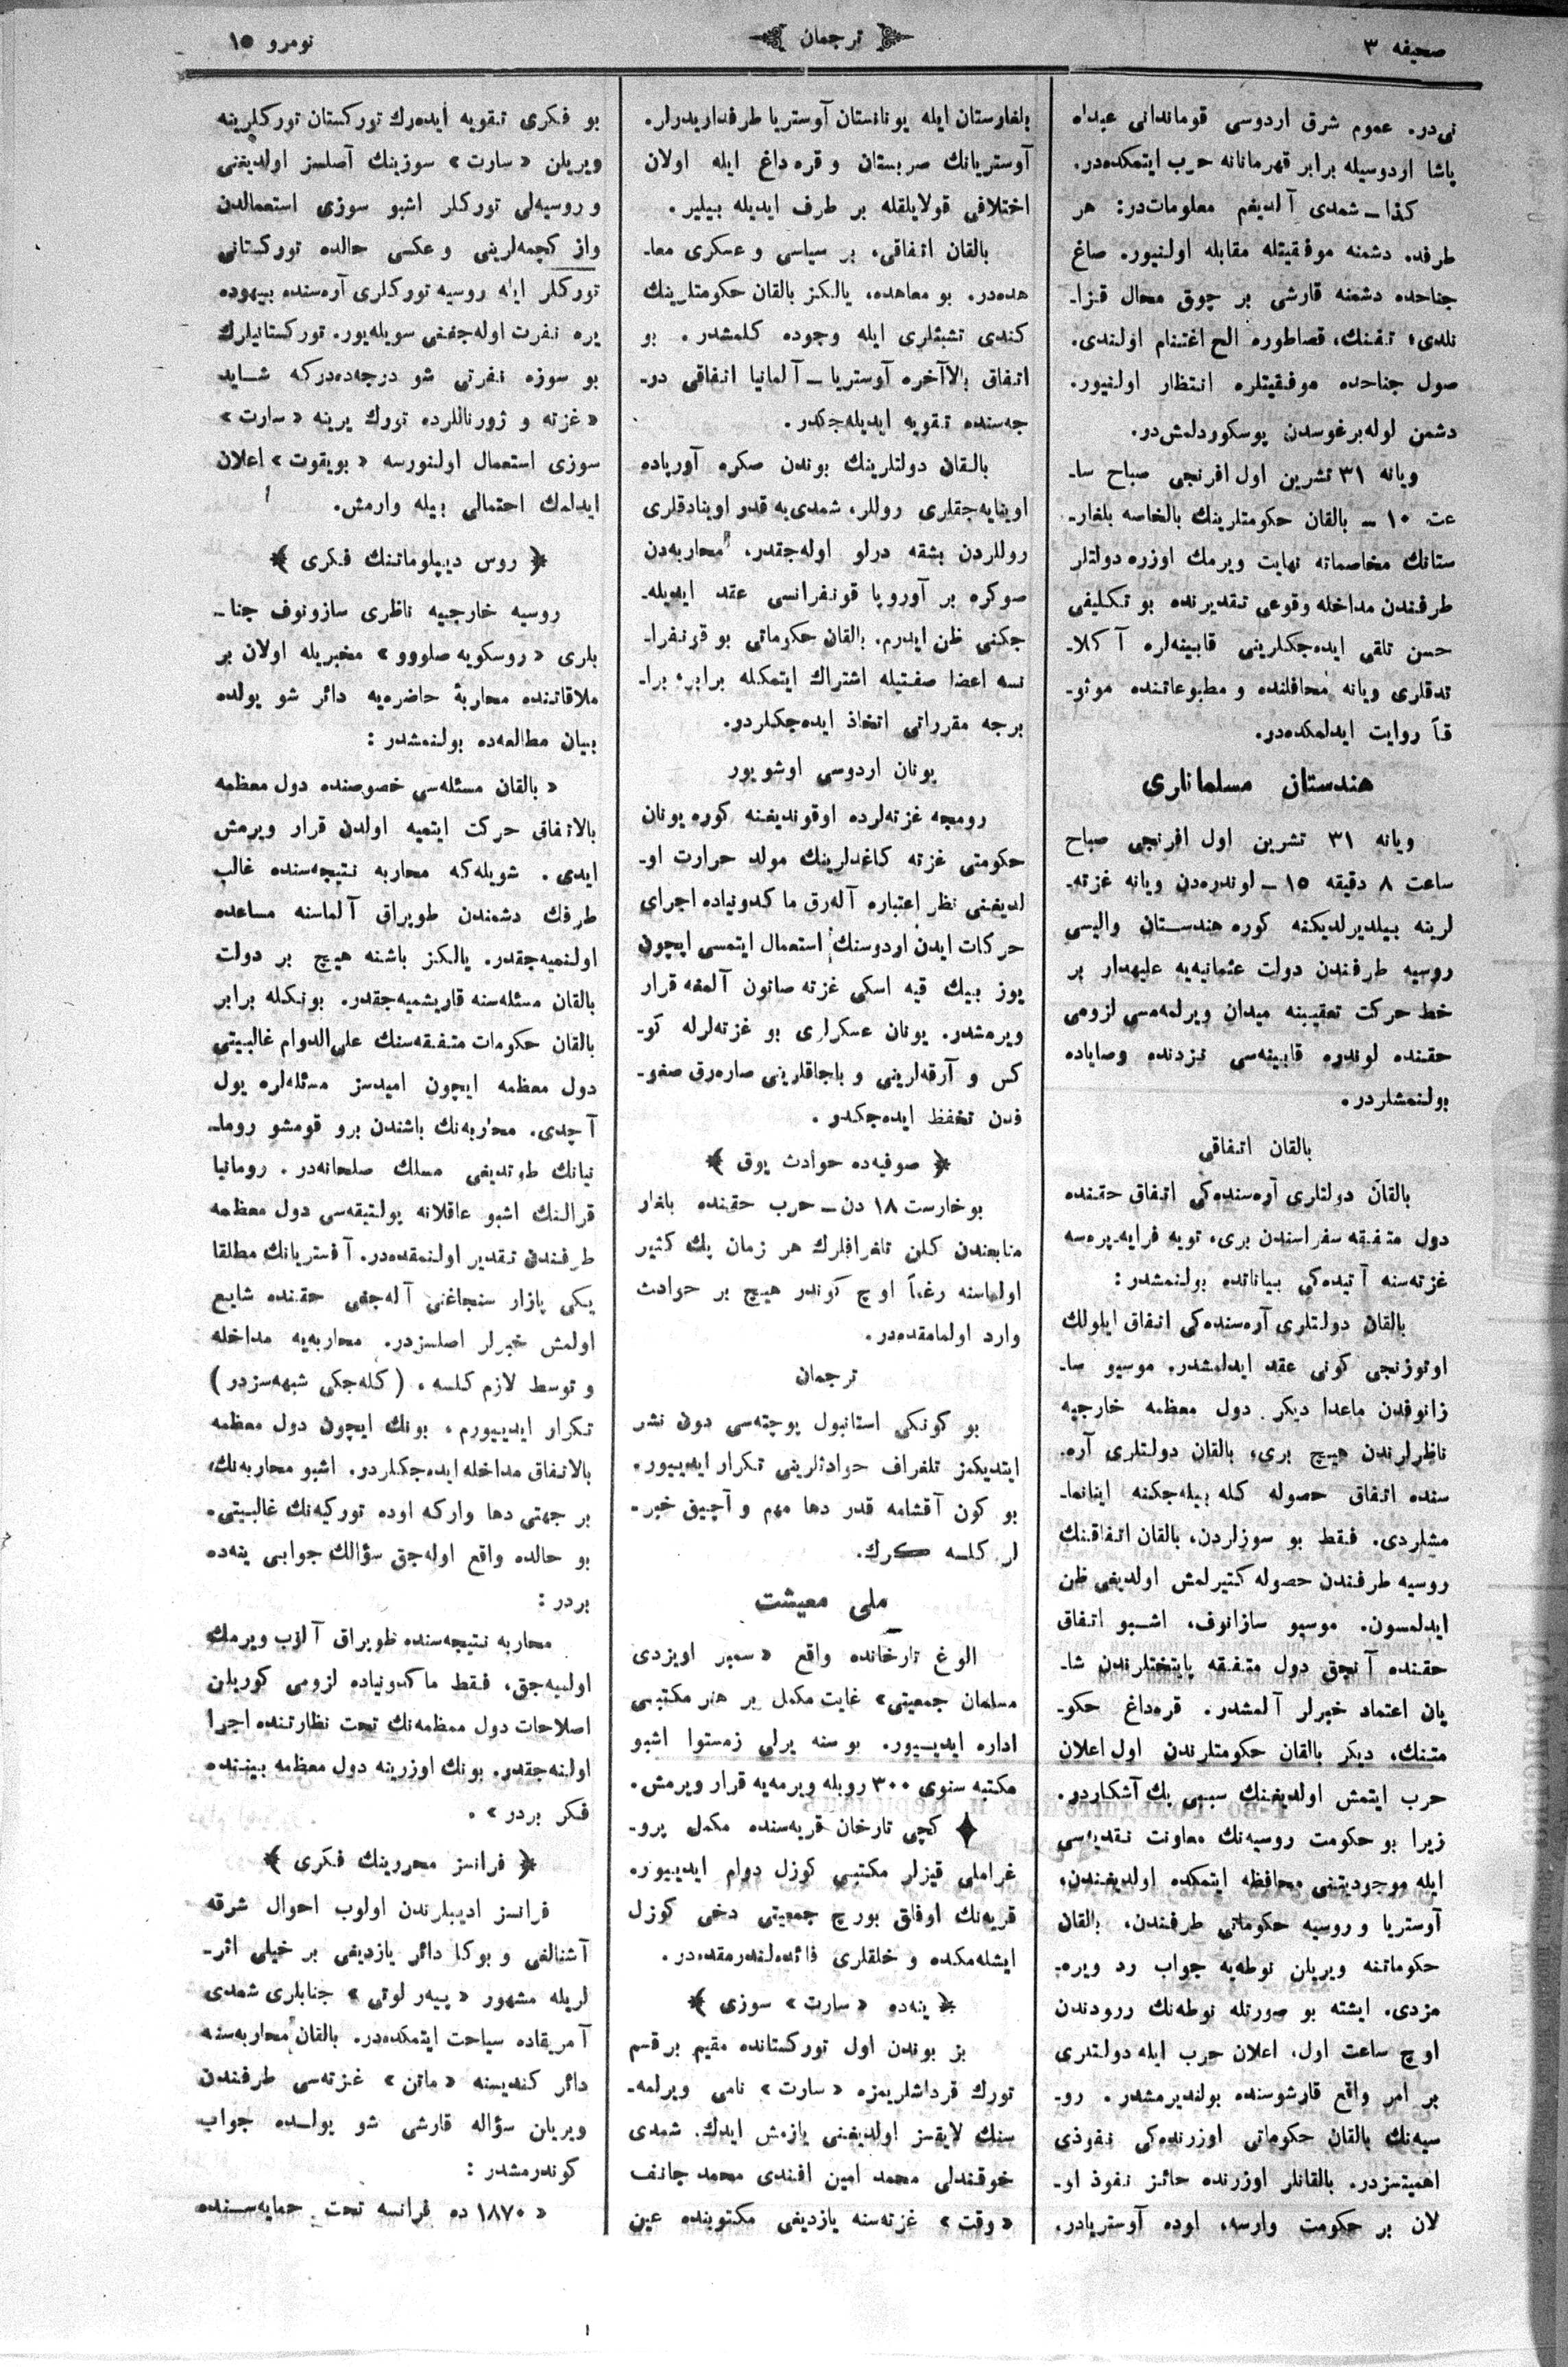 صحیفه ۳
ترجمان
نومرو ۱۵
نی‌در. عموم شرق اردوسی قوماندانی عبداه
پاشا اردوسیله برابر قهرمانانه حرب ایتمکده‌در.
کذا ــ شمدی آلدیغم معلومات‌در: هر
طرفده دشمنه موفقیتله مقابله اولنیور. صاغ
جناحده دشمنه قارشی بر چوق محال قزا-
نلدی؛ تفنك، قصاطوره الخ اغتنام اولندی.
صول جناحده موفقیتلره انتظار اولنیور.
دشمن لوله‌برغوسدن پوسکوردلمش‌در.
ویانه ۳۱ تشرین اول افرنجی صباح سا-
عت ۱۰ ــ بالقان حکومتلرینك بالخاصه بلغار-
ستانك مخاصماته نهایت ویرمك اوزره دولتلر
طرفندن مداخله وقوعی تقدیرنده بو تکلیفی
حسن تلقی ایده‌جکلرینی قابینه‌لره آکلا-
تدقلری ویانه محافلنده و مطبوعاتنده موثو-
قاً روایت ایدلمکده‌در.
هندستان مسلمانلری
ویانه ۳۱ تشرین اول افرنجی صباح
ساعت ۸ دقیقه ۱۵ ــ لوندره‌دن ویانه غزته-
لرینه بیلدیرلدیکنه کوره هندستان والیسی
روسیه طرفندن دولت عثمانیه‌یه علیهدار بر
خط حرکت تعقیبنه میدان ویرلمه‌مسی لزومی
حقنده لوندره قابینه‌سی نزدنده وصایاده
بولنمشلردر.
بالقان اتفاقی
بالقان دولتلری آره‌سنده‌کی اتفاق حقنده
دول متفقه سفراسندن بری، نویه فرایه‌پره‌سه
غزته‌سنه آتیده‌کی بیاناتده بولنمشدر:
بالقان دولتلری آره‌سنده‌کی اتفاق ایلولك
اوتوزنجی کونی عقد ایدلمشدر. موسیو سا-
زانوفدن ماعدا دیکر دول معظمه خارجیه
ناظرلرندن هیچ بری، بالقان دولتلری آره-
سنده اتفاق حصوله کله بیله‌جکنه اینانما-
مشلردی. فقط بو سوزلردن، بالقان اتفاقنك
روسیه طرفندن حصوله کتیرلمش اولدیغی ظن
ایدلمسون. موسیو سازانوف، اشبو اتفاق
حقنده آنجق دول متفقه پایتختلرندن شا-
یان اعتماد خبرلر آلمشدر. قره‌داغ حکو-
متنك، دیکر بالقان حکومتلرندن اول اعلان
حرب ایتمش اولدیغنك سببی پك آشکاردر.
زیرا بو حکومت روسیه‌نك معاونت نقدیه‌سی
ایله موجودیتنی محافظه ایتمکده اولدیغندن،
آوستریا و روسیه حکوماتی طرفندن، بالقان
حکوماتنه ویریلن نوطه‌یه جواب رد ویره-
مزدی. ایشته بو صورتله نوطه‌نك ررودندن
اوچ ساعت اول، اعلان حرب ایله دولتلری
بر امر واقع قارشوسنده بولندیرمشدر. رو-
سیه‌نك بالقان حکوماتی اوزرنده‌کی نفوذی
اهمیتسزدر. بالقانلر اوزرنده حائز نفوذ او-
لان بر حکومت وارسه، اوده آوستریادر.
بلغارستان ایله یونانستان آوستریا طرفداریدرلر.
آوستریانك صربستان و قره داغ ایله اولان
اختلافی قولایلقله بر طرف ایدیله بیلیر.
بالقان اتفاقی، بر سیاسی و عسکری معا-
هده‌در. بو معاهده، یالکز بالقان حکومتلرینك
کندی تشبثلری ایله وجوده کلمشدر. بو
اتفاق بالآخره آوستریا ــ آلمانیا اتفاقی در-
جه‌سنده تقویه ایدیله‌جکدر.
بالقان دولتلرینك بوندن صکره آورپاده
اوینایه‌جقلری روللر، شمدی‌یه قدر اوینادقلری
روللردن بشقه درلو اوله‌جقدر. محاربه‌دن
صوکره بر آوروپا قونفرانسی عقد ایدیله-
جکنی ظن ایدرم. بالقان حکوماتی بو قونفرا-
نسه اعضا صفتیله اشتراك ایتمکله برابر، برا-
برجه مقرراتی اتخاذ ایده‌جکلردر.
یونان اردوسی اوشویور
رومجه غزته‌لرده اوقوندیغنه کوره یونان
حکومتی غزته کاغدلرینك مولد حرارت او-
لدیغنی نظر اعتباره آله‌رق ماکدونیاده اجرای
حرکات ایدن اردوسنك استعمال ایتمسی ایچون
یوز بیك قیه اسکی غزته صاتون آلمغه قرار
ویرمشدر. یونان عسکرلری بو غزته‌لرله کو-
کس و آرقه‌لرینی و باجاقلرینی صاره‌رق صغو-
قدن تحفظ ایده‌جکدر.
﴿ صوفیه‌ده حوادث یوق ﴾
بوخارست ۱۸ دن ــ حرب حقنده بلغار
منابعندن کلن تلغرافلرك هر زمان پك کثیر
اولماسنه رغماً اوچ کوندر هیچ بر حوادث
وارد اولمامقده‌در.
ترجمان
بو کونکی استانبول پوچته‌سی دون نشر
ایتدیکمز تلغراف حوادثلرینی تکرار ایدییور.
بو کون آقشامه قدر دها مهم و آچیق خبر-
لر کلسه کرك.
ملی معیشت
الوغ تارخانده واقع «سمبر اویزدی
مسلمان جمعیتی» غایت مکمل بر هنر مکتبسی
اداره ایدییور. بو سنه یرلی زمستوا اشبو
مکتبه سنوی ۳۰۰ روبله ویرمه‌یه قرار ویرمش.
✦ کچی تارخان قریه‌سنده مکمل پرو-
غراملی قیزلر مکتبی کوزل دوام ایدییور.
قریه‌نك اوفاق بورچ جمعیتی دخی کوزل
ایشله‌مکده و خلقلری فائده‌لندرمقده‌در.
﴿ ینه‌ده «سارت» سوزی ﴾
بز بوندن اول تورکستانده مقیم بر قسم
تورك قرداشلریمزه «سارت» نامی ویرلمه-
سنك لایقسز اولدیغنی یازمش ایدك. شمدی
خوقندلی محمد امین افندی محمد جانف
«وقت» غزته‌سنه یازدیغی مکتوبنده عین
بو فکری تقویه ایده‌رك تورکستان تورکلرینه
ویریلن «سارت» سوزینك آصلسز اولدیغنی
و روسیه‌لی تورکلر اشبو سوزی استعمالدن
واز کچمه‌لرینی و عکسی حالده تورکستانی
تورکلر ایله روسیه تورکلری آره‌سنده بیهوده
یره نفرت اوله‌جغنی سویله‌یور. تورکستانیلرك
بو سوزه نفرتی شو درجه‌ده‌درکه شاید
«غزته و ژورناللرده تورك یرینه «سارت»
سوزی استعمال اولنورسه «بویقوت» اعلان
ایدلمك احتمالی بیله وارمش.
﴿ روس دیپلوماتنك فکری ﴾
روسیه خارجیه ناظری سازونوف جنا-
بلری «روسکویه صلووو» مخبریله اولان بر
ملاقاتنده محاربهٔ حاضره‌یه دائر شو یولده
بیان مطالعه‌ده بولنمشدر:
«بالقان مسئله‌سی خصوصنده دول معظمه
بالاتفاق حرکت ایتمیه اولدن قرار ویرمش
ایدی. شویله‌که محاربه نتیجه‌سنده غالب
طرفك دشمندن طوپراق آلماسنه مساعده
اولنمیه‌جقدر. یالکز باشنه هیچ بر دولت
بالقان مسئله‌سنه قاریشمیه‌جقدر. بونکله برابر
بالقان حکومات متفقه‌سنك علی‌الدوام غالبیتی
دول معظمه ایچون امیدسز مسئله‌لره یول
آچدی. محاربه‌نك باشندن برو قومشو روما-
نیانك طوتدیغی مسلك صلحانه‌در. رومانیا
قرالنك اشبو عاقلانه پولتیقه‌سی دول معظمه
طرفندن تقدیر اولنمقده‌در. آفستریانك مطلقا
یکی پازار سنجاغنی آله‌جغی حقنده شایع
اولمش خبرلر اصلسزدر. محاربه‌یه مداخله
و توسط لازم کلسه، (کله‌جکی شبهه‌سزدر)
تکرار ایدییورم، بونك ایچون دول معظمه
بالاتفاق مداخله ایده‌جکلردر. اشبو محاربه‌نك،
بر جهتی دها وارکه اوده تورکیه‌نك غالبیتی.
بو حالده واقع اوله‌جق سؤالك جوابی ینه‌ده
بردر:
محاربه نتیجه‌سنده طوپراق آلوب ویرمك
اولمیه‌جق، فقط ماکدونیاده لزومی کوریلن
اصلاحات دول معظمه‌نك تحت نظارتنده اجرا
اولنه‌جقدر. بونك اوزرینه دول معظمه بیننده
فکر بردر».
﴿ فرانسز محررینك فکری ﴾
فرانسز ادیبلرندن اولوب احوال شرقه
آشنالغی و بوکا دائر یازدیغی بر خیلی اثر-
لریله مشهور «پیه‌ر لوتی» جنابلری شمدی
آمریقاده سیاحت ایتمکده‌در. بالقان محاربه‌سنه
دائر کندیسنه «ماتن» غزته‌سی طرفندن
ویریلن سؤاله قارشی شو یولده جواب
کوندرمشدر:
«۱۸۷۰ ده فرانسه تحت حمایه‌سنده